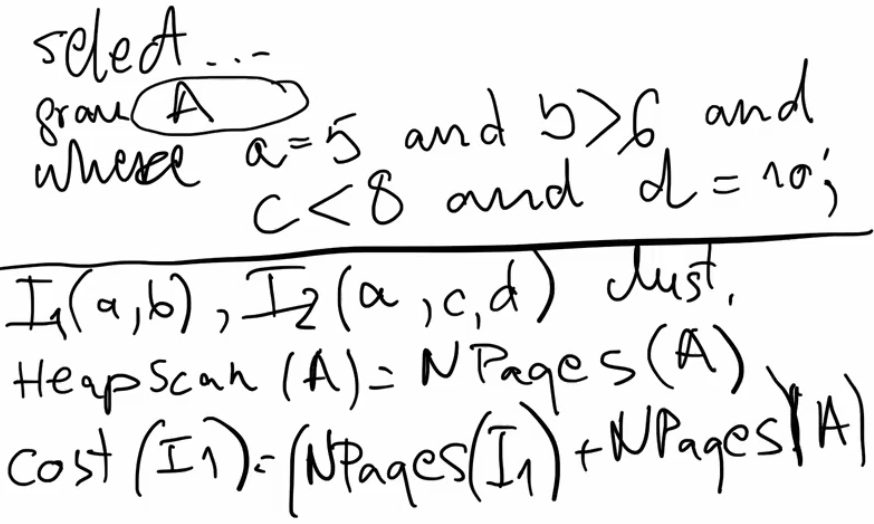 select ...
from A
where a=5 and b>6 and
c<8 and d=10;
I1(a,b), I2(a,c,d) clust.
HeapScan (A)= NPages(A)
cost(I1)=(NPages(I1)+NPages(A)